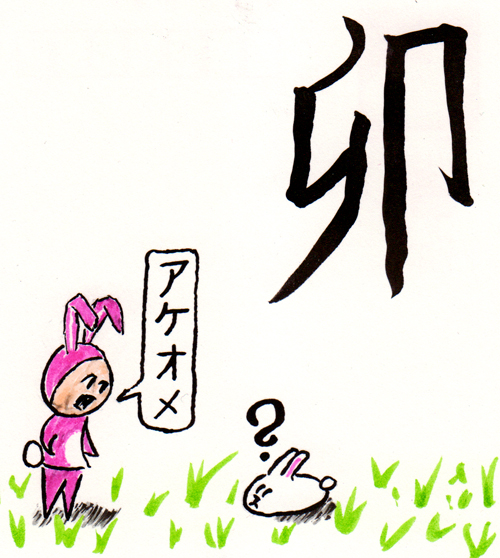 卯
アケオメ
?